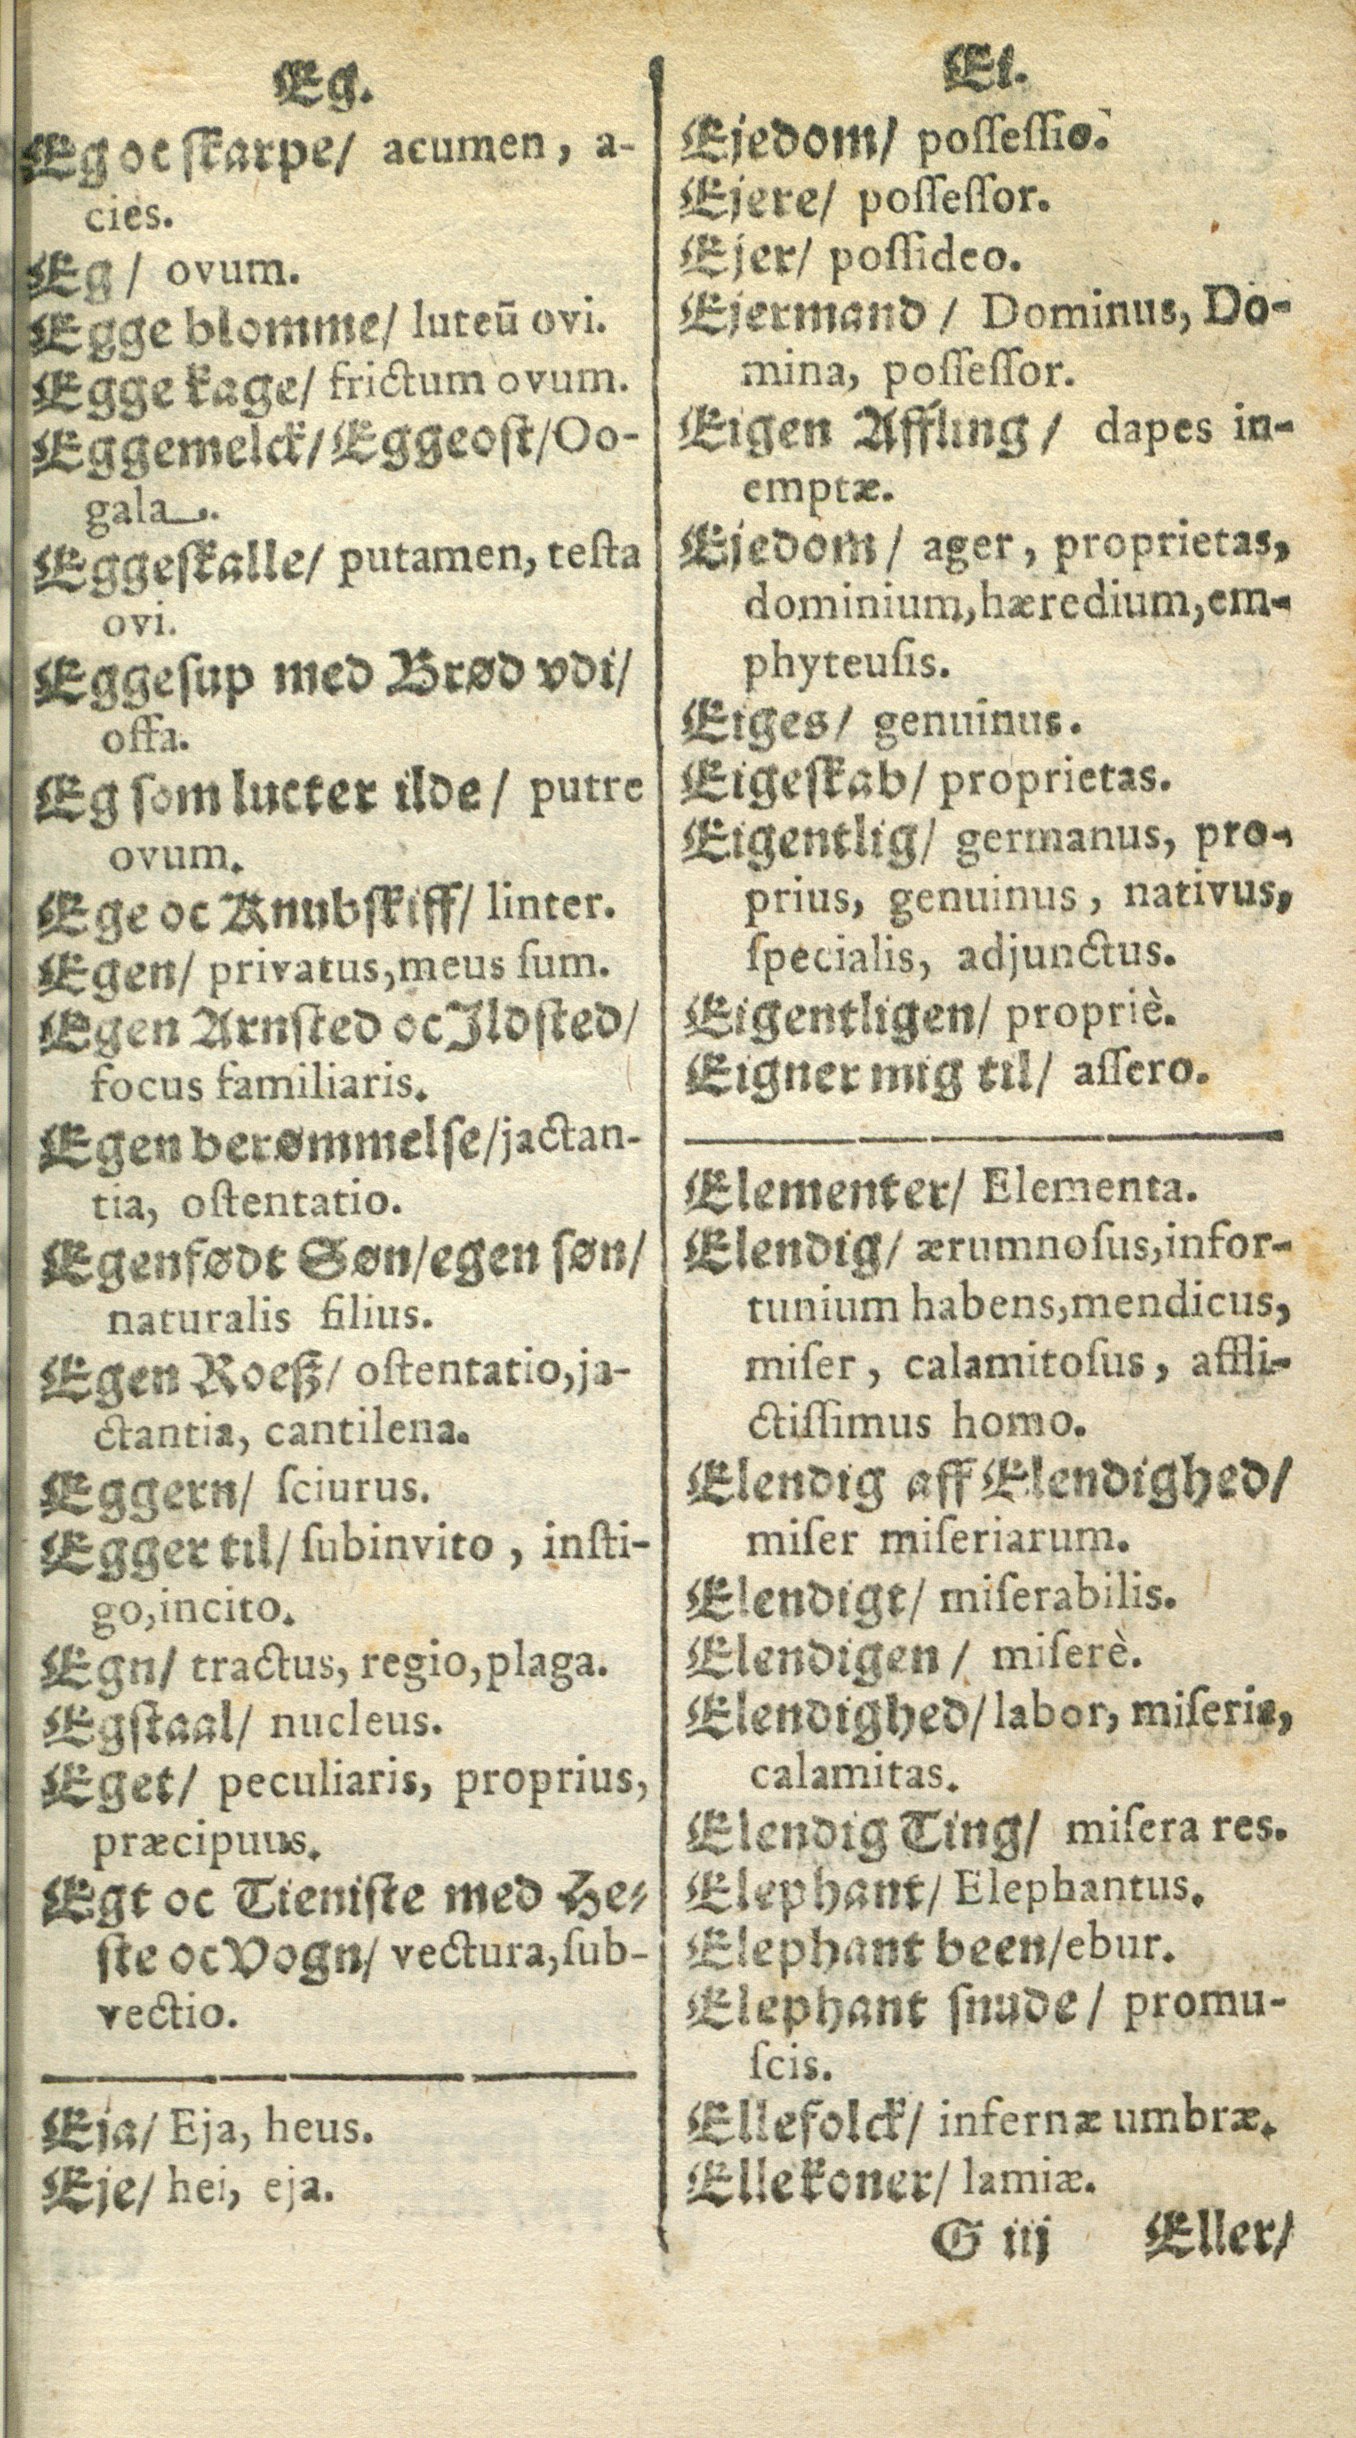 Eg.
Eg oc ſkarpe/ acumen, a-
cies.
Eg/ ovum.
Egge blomme/ luteū ovi.
Egge kage/ frictum ovum.
Eggemelck/ Eggeoſt/ Oo-
gala.
Eggeſkalle/ putamen, teſta
ovi.
Eggeſup med Brød vdi/
offa.
Eg ſom lucter ilde/ putre
ovum.
Ege oc Knubſkiff/ linter.
Egen/ privatus, meus ſum.
Egen Arnſted oc Jldſted/
focus familiaris.
Egen berømmelſe/ jactan-
tia, oſtentatio.
Egenfødt Søn/ egen ſøn/
naturalis filius.
Egen Roeß/ oſtentatio, ja-
ctantia, cantilena.
Eggern/ ſciurus.
Egger til/ ſubinvito, inſti-
go, incito.
Egn/ tractus, regio, plaga.
Egſtaal/ nucleus.
Eget/ peculiaris, proprius,
præcipuus.
Egt oc Tieniſte med He-
ſte oc Vogn/ vectura, ſub-
vectio.
Eja/ Eja, heus.
Eje/ hei, eja.
El.
Ejedom/ poſſeſſio.
Ejere/ poſſeſſor.
Ejer/ poſſideo.
Ejermand/ Dominus, Do-
mina, poſſeſſor.
Eigen Affling/ dapes in-
emptæ.
Ejedom/ ager, proprietas,
dominium, hæredium, em-
phyteuſis.
Eiges/ genuinus.
Eigeſkab/ proprietas.
Eigentlig/ germanus, pro-
prius, genuinus, nativus,
ſpecialis, adjunctus.
Eigentligen/ propriè.
Eigner mig til/ aſſero.
Elementer/ Elementa.
Elendig/ ærumnoſus, infor-
tunium habens, mendicus,
miſer, calamitoſus, affli-
ctiſſimus homo.
Elendig aff Elendighed/
miſer miſeriarum.
Elendigt/ miſerabilis.
Elendigen/ miſerè.
Elendighed/ labor, miſeria,
calamitas.
Elendig Ting/ miſera res.
Elephant/ Elephantus.
Elephant been/ ebur.
Elephant ſnude/ promu-
ſcis.
Ellefolck/ infernæ umbræ.
Ellekoner/ lamiæ.
G iij Eller/